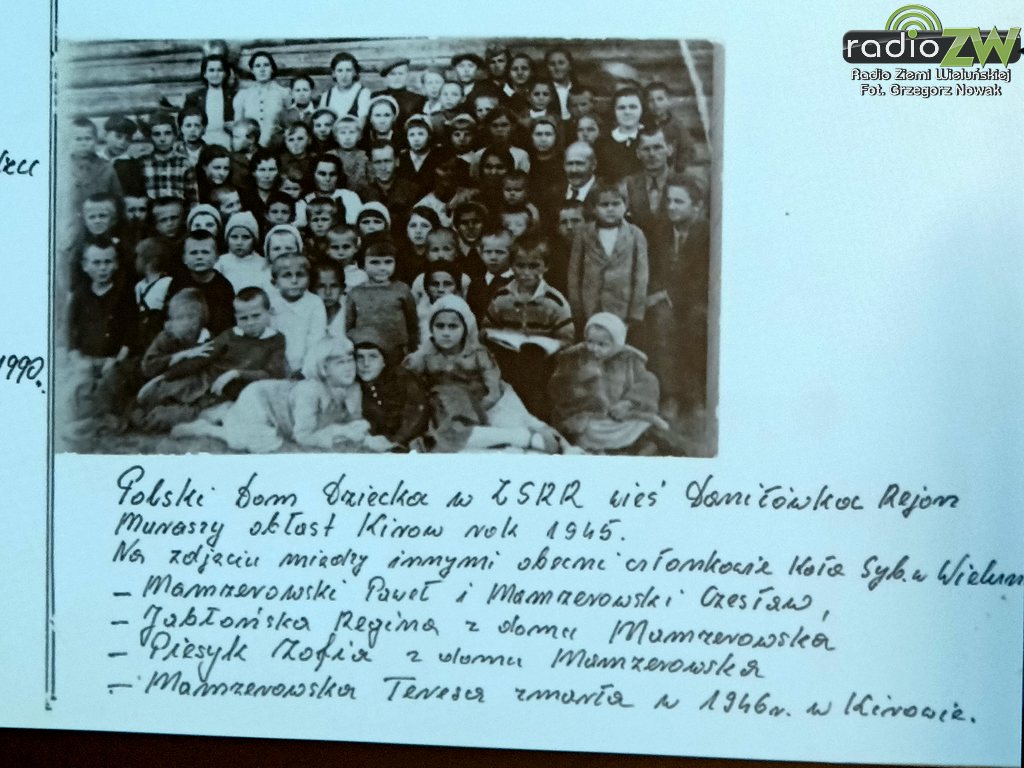 radioZW
Radio Ziemi Wieluńskiej
Fot. Grzegorz Nowak
1990r.
Polski Dom Dziecka w ZSRR wieś Daniłówka Rejon
Muraszy obłast Kirow rok 1945.
Na zdjęciu między innymi obecni członkowie Koła Syb. w Wieluniu
– Mamzerowski Paweł i Mamzerowski Czesław,
– Jabłońska Regina z domu Mamzerowska
– Piesyk Zofia z domu Mamzerowska
– Mamzerowska Teresa zmarła w 1946r. w Kirowie.